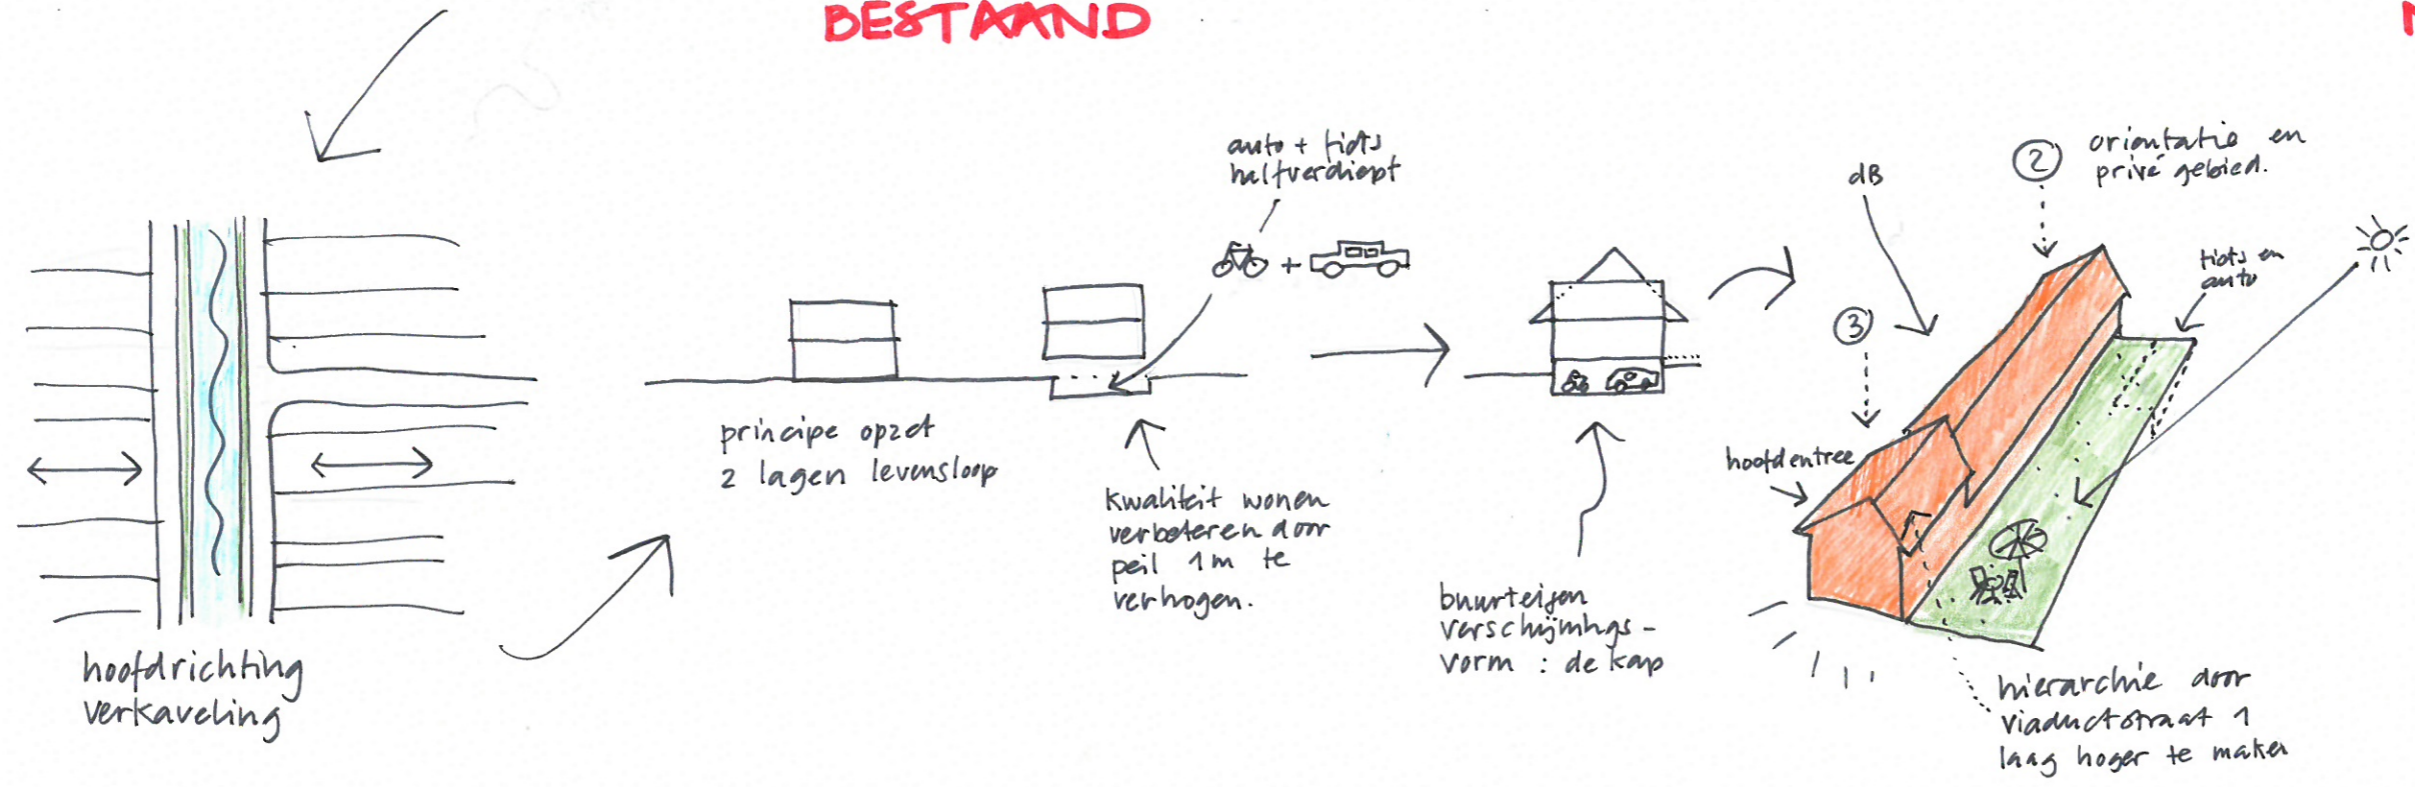 BESTAAND
hoofdrichting
verkaveling
principe opzet
2 lagen levensloop
auto + fiets
halfverdiept
+
kwaliteit wonen
verbeteren door
peil 1m te
verhogen.
buurteigen
verschijnings-
vorm : de kap
dB
2
orientatie en
privé gebied.
fiets en
auto
3
hoofdentree
hierarchie door
viaductstraat 1
laag hoger te maken